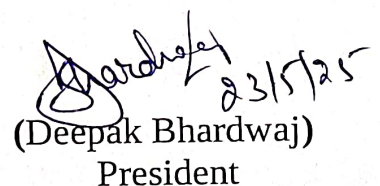 Bhardwaj
23/5/25
(Deepak Bhardwaj)
President